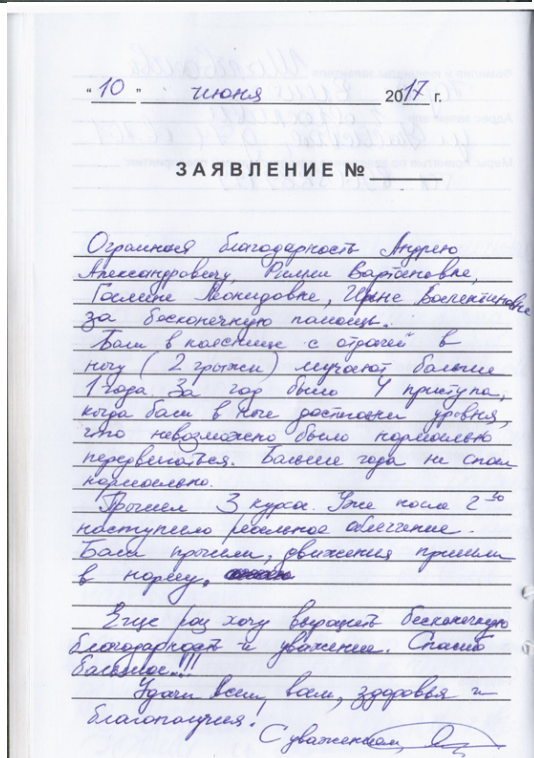 "10" июня 2017 г.
ЗАЯВЛЕНИЕ №
Огромная благодарность Андрею
Александровичу, Римме Вартановне,
Галине Леонидовне, Ирине Валентиновне
за бесконечную помощь.
Боли в пояснице с отдачей в
ногу (2 грыжи) мучают больше
1 года. За год было 4 приступа,
когда боли в ноге достигали уровня,
что невозможно было нормально
передвигаться. Больше года не спал
нормально.
Прошел 3 курса. Уже после 2го
наступило реальное облегчение.
Боли прошли, движения пришли
в норму,
Еще раз хочу выразить бесконечную
благодарность и уважение. Спасибо
большое!!!
Удачи Всем, всем, здоровья и
благополучия!
С уважением,